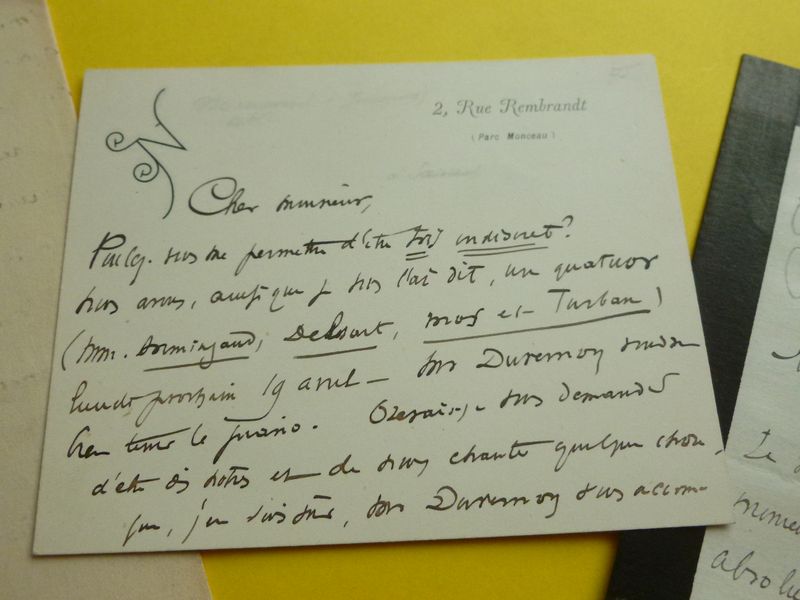 2, Rue Rembrandt
(Parc Monceau)
Cher monsieur,
me permettre d'être très indiscret?
nous avons, ainsi que je vous l'ai dit, un quatuor
(MM. Armingaud, Delsart, Mas et Turban)
lundi prochain 19 avril — Duvernoy
bien tenir le piano. Oserais-je vous demander
d'être des nôtres et de nous chanter quelque chose
que, j'en suis sûr, Duvernoy vous accom-
Le
absolu